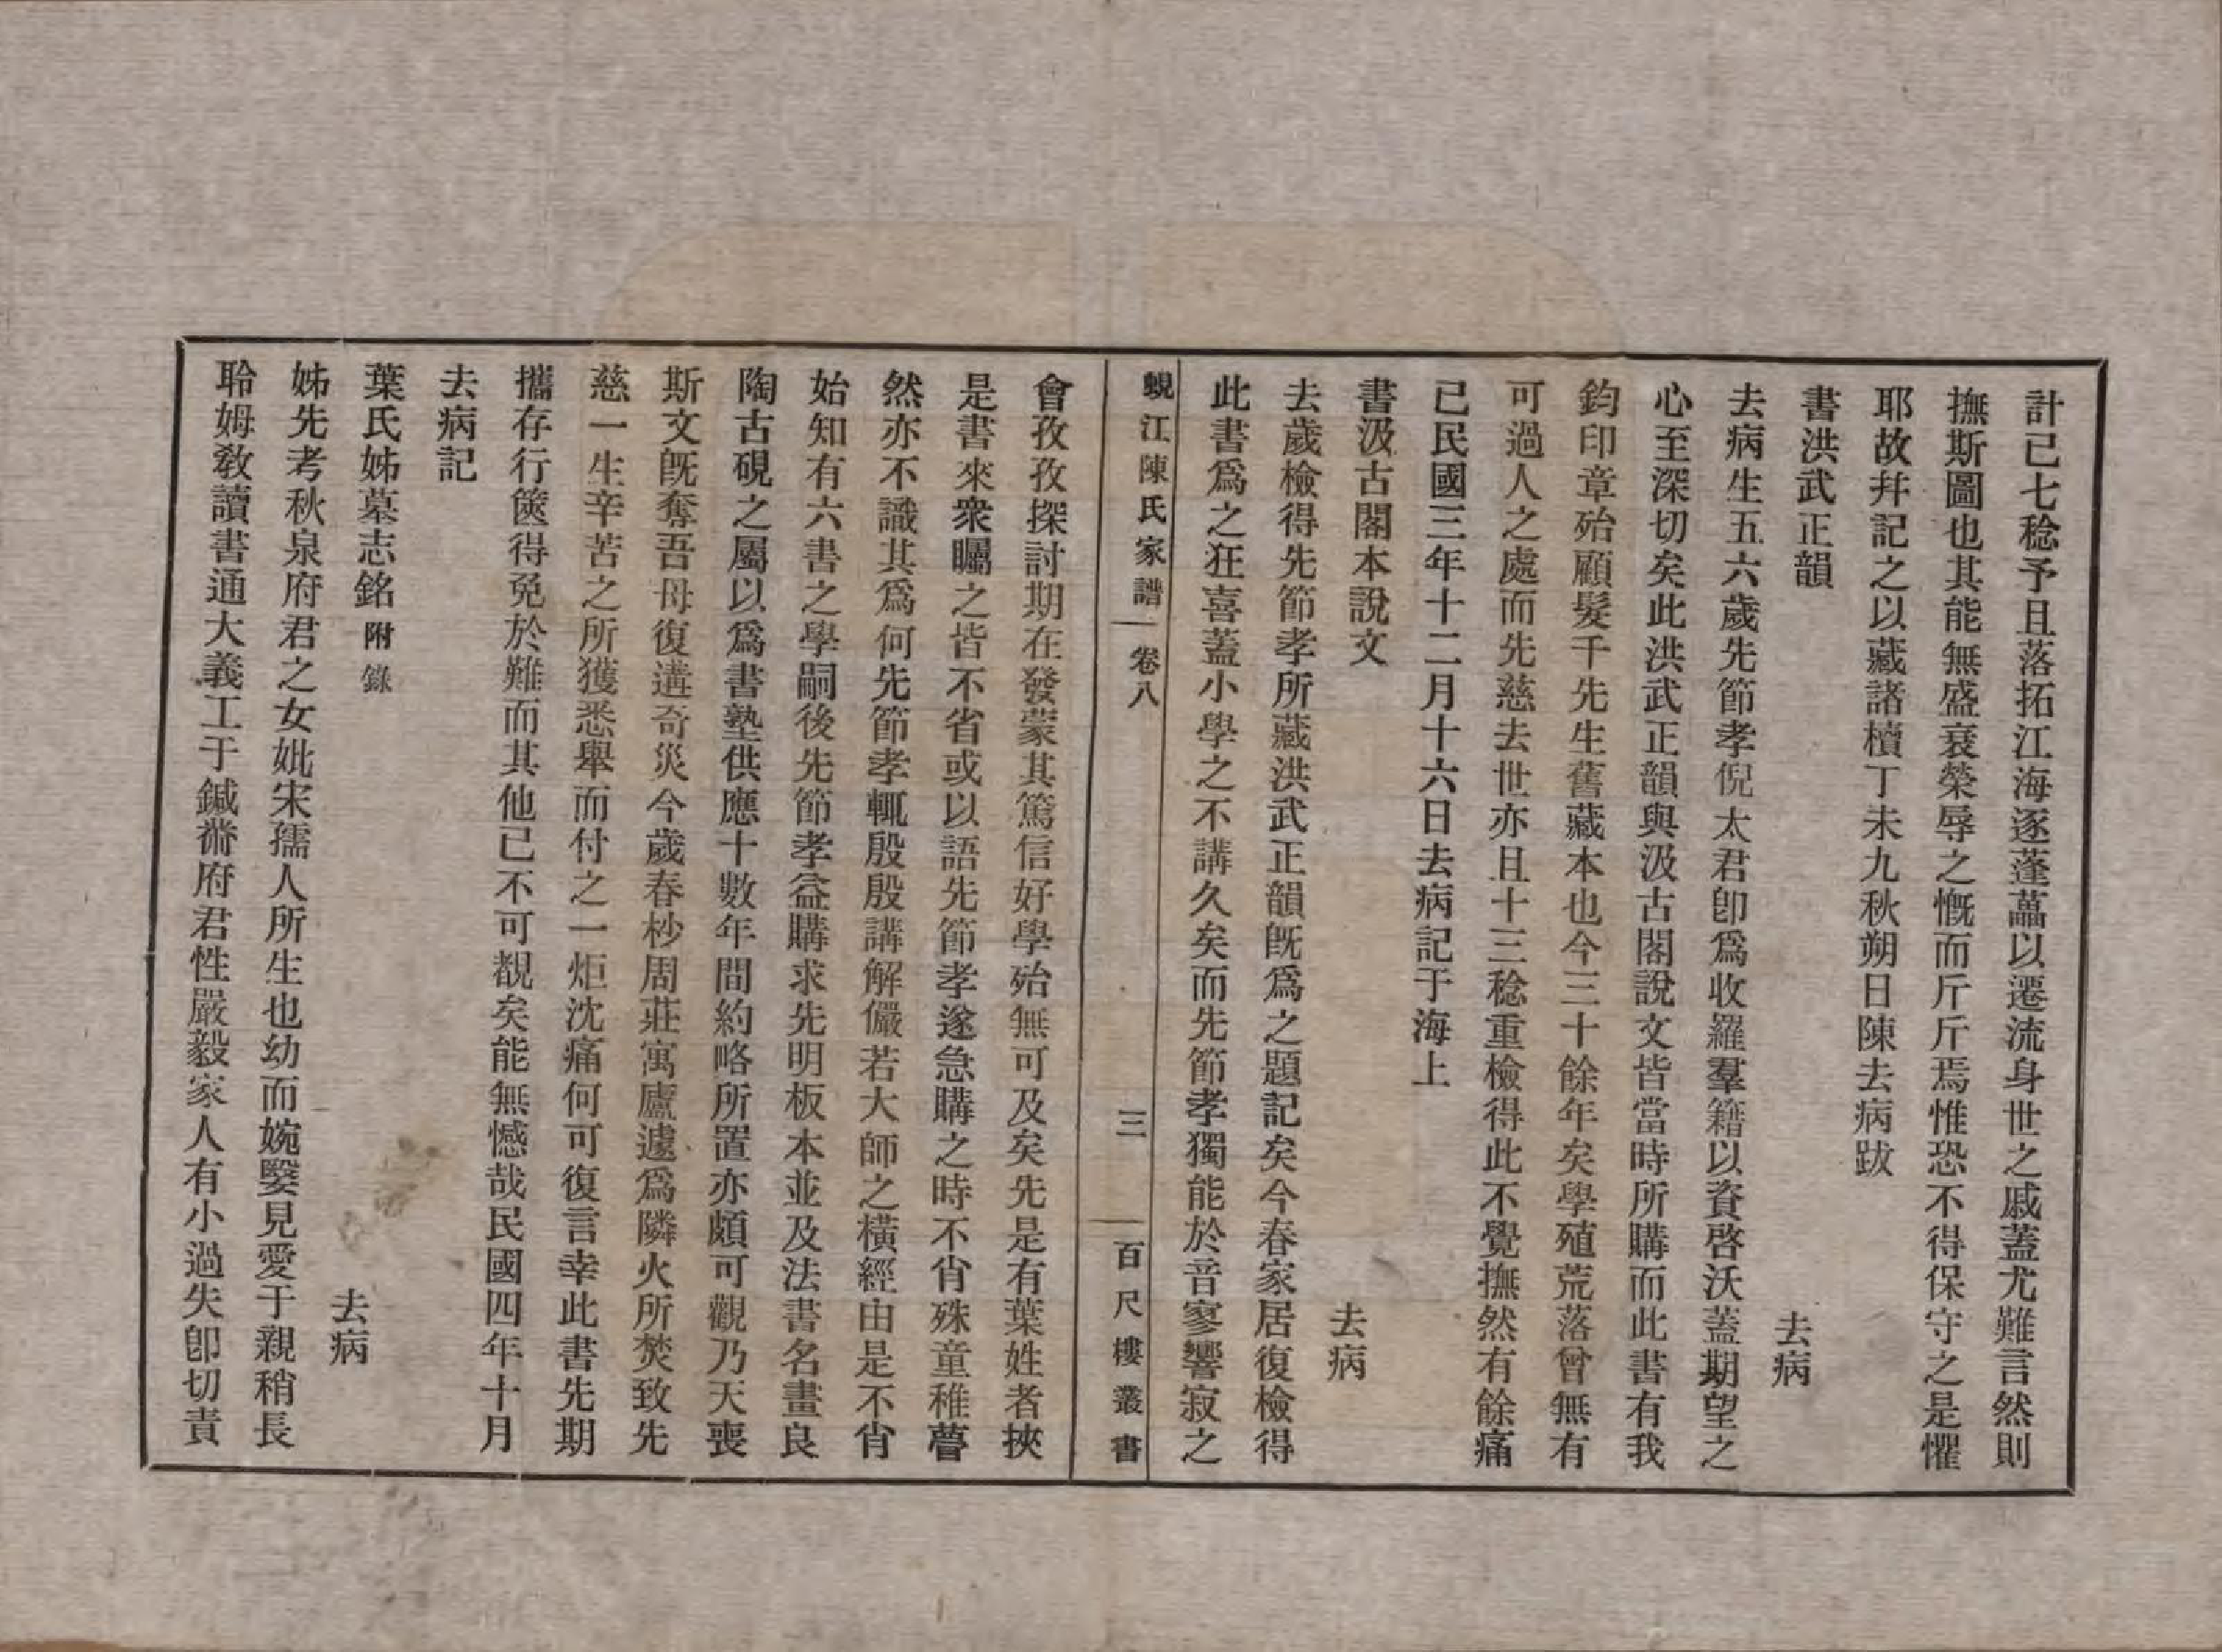 計已七稔予且落拓江海逐蓬藟以遷流身世之戚蓋尤難言然則
撫斯圖也其能無盛衰榮辱之慨而斤斤焉惟恐不得保守之是懼
耶故幷記之以藏諸櫝丁未九秋朔日陳去病跋
書洪武正韻
去病
去病生五六歲先節孝倪太君卽爲收羅羣籍以資啓沃蓋期望之
心至深切矣此洪武正韻與汲古閣說文皆當時所購而此書有我
鈞印章殆顧髮千先生舊藏本也今三十餘年矣學殖荒落曾無有
可過人之處而先慈去世亦且十三稔重檢得此不覺撫然有餘痛
已民國三年十二月十六日去病記于海上
書汲古閣本說文
去病
去歲檢得先節孝所藏洪武正韻旣爲之題記矣今春家居復檢得
此書爲之狂喜蓋小學之不講久矣而先節孝獨能於音寥響寂之
蜆江陳氏家譜 卷八 三 百尺樓叢書
會孜孜探討期在發蒙其篤信好學殆無可及矣先是有葉姓者挾
是書來衆矚之皆不省或以語先節孝遂急購之時不肖殊童稚瞢
然亦不識其爲何先節孝輒殷殷講解儼若大師之橫經由是不肖
始知有六書之學嗣後先節孝益購求先明板本並及法書名畫良
陶古硯之屬以爲書塾供應十數年間約略所置亦頗可觀乃天喪
斯文旣奪吾母復遘奇災今歲春杪周莊寓廬遽爲隣火所焚致先
慈一生辛苦之所獲悉舉而付之一炬沈痛何可復言幸此書先期
攜存行篋得免於難而其他已不可覩矣能無憾哉民國四年十月
去病記
葉氏姊墓志銘附錄
去病
姊先考秋泉府君之女妣宋孺人所生也幼而婉嫛見愛于親稍長
聆姆敎讀書通大義工于鍼黹府君性嚴毅家人有小過失卽切責